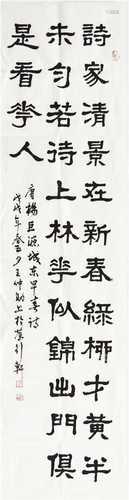 詩家清景在新春綠柳才黃半
未勻若待上林花似錦出門俱
是看花人
唐楊巨源城東早春詩
戊戌年